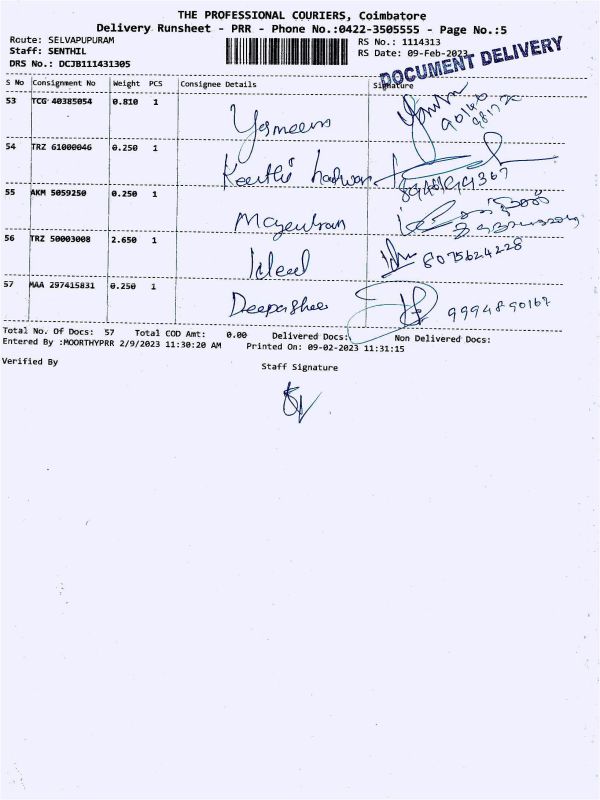 THE PROFESSIONAL COURIERS, Coimbatore
Delivery Runsheet - PRR - Phone No.:0422-3505555 - Page No.:5
Route: SELVAPUPURAM
Staff: SENTHIL
DRS No.: DCJB111431305
RS No.: 1114313
RS Date: 09-Feb-2023
DOCUMENT DELIVERY
S No Consignment No Weight PCS Consignee Details Signature
53 TCG 40385054 0.810 1 Yasmeen
54 TRZ 61000046 0.250 1 Keerthi hadwar
55 AKM 5059250 0.250 1 Mayentran
56 TRZ 50003008 2.650 1 8075624228
57 MAA 297415831 0.250 1 Deepashee 9994890167
Total No. Of Docs: 57 Total COD Amt: 0.00 Delivered Docs: Non Delivered Docs:
Entered By :MOORTHYPRR 2/9/2023 11:30:20 AM Printed On: 09-02-2023 11:31:15
Verified By
Staff Signature